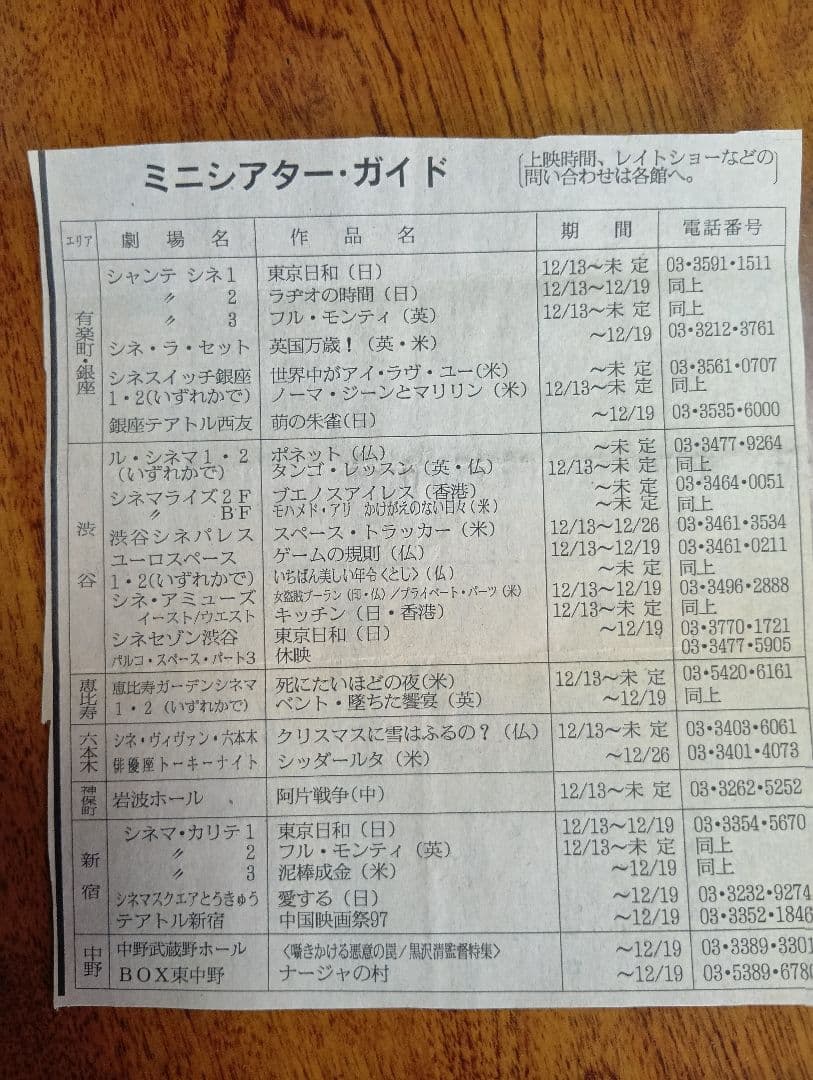 ミニシアター・ガイド
〔上映時間、レイトショーなどの
問い合わせは各館へ。〕
エリア 劇場名 作品名 期間 電話番号
有楽町・銀座
シャンテ シネ1 東京日和（日） 12/13〜未定 03・3591・1511
〃 2 ラヂオの時間（日） 12/13〜12/19 同上
〃 3 フル・モンティ（英） 12/13〜未定 同上
シネ・ラ・セット 英国万歳！（英・米） 〜12/19 03・3212・3761
シネスイッチ銀座 世界中がアイ・ラヴ・ユー（米） 〜未定 03・3561・0707
1・2（いずれかで） ノーマ・ジーンとマリリン（米） 12/13〜未定 同上
銀座テアトル西友 萌の朱雀（日） 〜12/19 03・3535・6000
渋谷
ル・シネマ1・2 ポネット（仏） 〜未定 03・3477・9264
（いずれかで） タンゴ・レッスン（英・仏） 12/13〜未定 同上
シネマライズ2F ブエノスアイレス（香港） 〜未定 03・3464・0051
〃 BF モハメド・アリ かけがえのない日々（米） 〜未定 同上
渋谷シネパレス スペース・トラッカー（米） 12/13〜12/26 03・3461・3534
ユーロスペース ゲームの規則（仏） 12/13〜12/19 03・3461・0211
1・2（いずれかで） いちばん美しい年令〈とし〉（仏） 〜未定 同上
シネ・アミューズ 女盗賊プーラン（印・仏）／プライベート・パーツ（米） 12/13〜12/19 03・3496・2888
イースト/ウエスト キッチン（日・香港） 12/13〜未定 同上
シネセゾン渋谷 東京日和（日） 〜12/19 03・3770・1721
パルコ・スペース・パート3 休映 03・3477・5905
恵比寿
恵比寿ガーデンシネマ 死にたいほどの夜（米） 12/13〜未定 03・5420・6161
1・2（いずれかで） ベント・墜ちた饗宴（英） 〜12/19 同上
六本木
シネ・ヴィヴァン・六本木 クリスマスに雪はふるの？（仏） 12/13〜未定 03・3403・6061
俳優座トーキーナイト シッダールタ（米） 〜12/26 03・3401・4073
神保町
岩波ホール 阿片戦争（中） 12/13〜未定 03・3262・5252
新宿
シネマ・カリテ1 東京日和（日） 12/13〜12/19 03・3354・5670
〃 2 フル・モンティ（英） 12/13〜未定 同上
〃 3 泥棒成金（米） 〜12/19 同上
シネマスクエアとうきゅう 愛する（日） 〜12/19 03・3232・9274
テアトル新宿 中国映画祭97 〜12/19 03・3352・1846
中野
中野武蔵野ホール 〈囁きかける悪意の罠/黒沢清監督特集〉 〜12/19 03・3389・3301
BOX東中野 ナージャの村 〜12/19 03・5389・6780